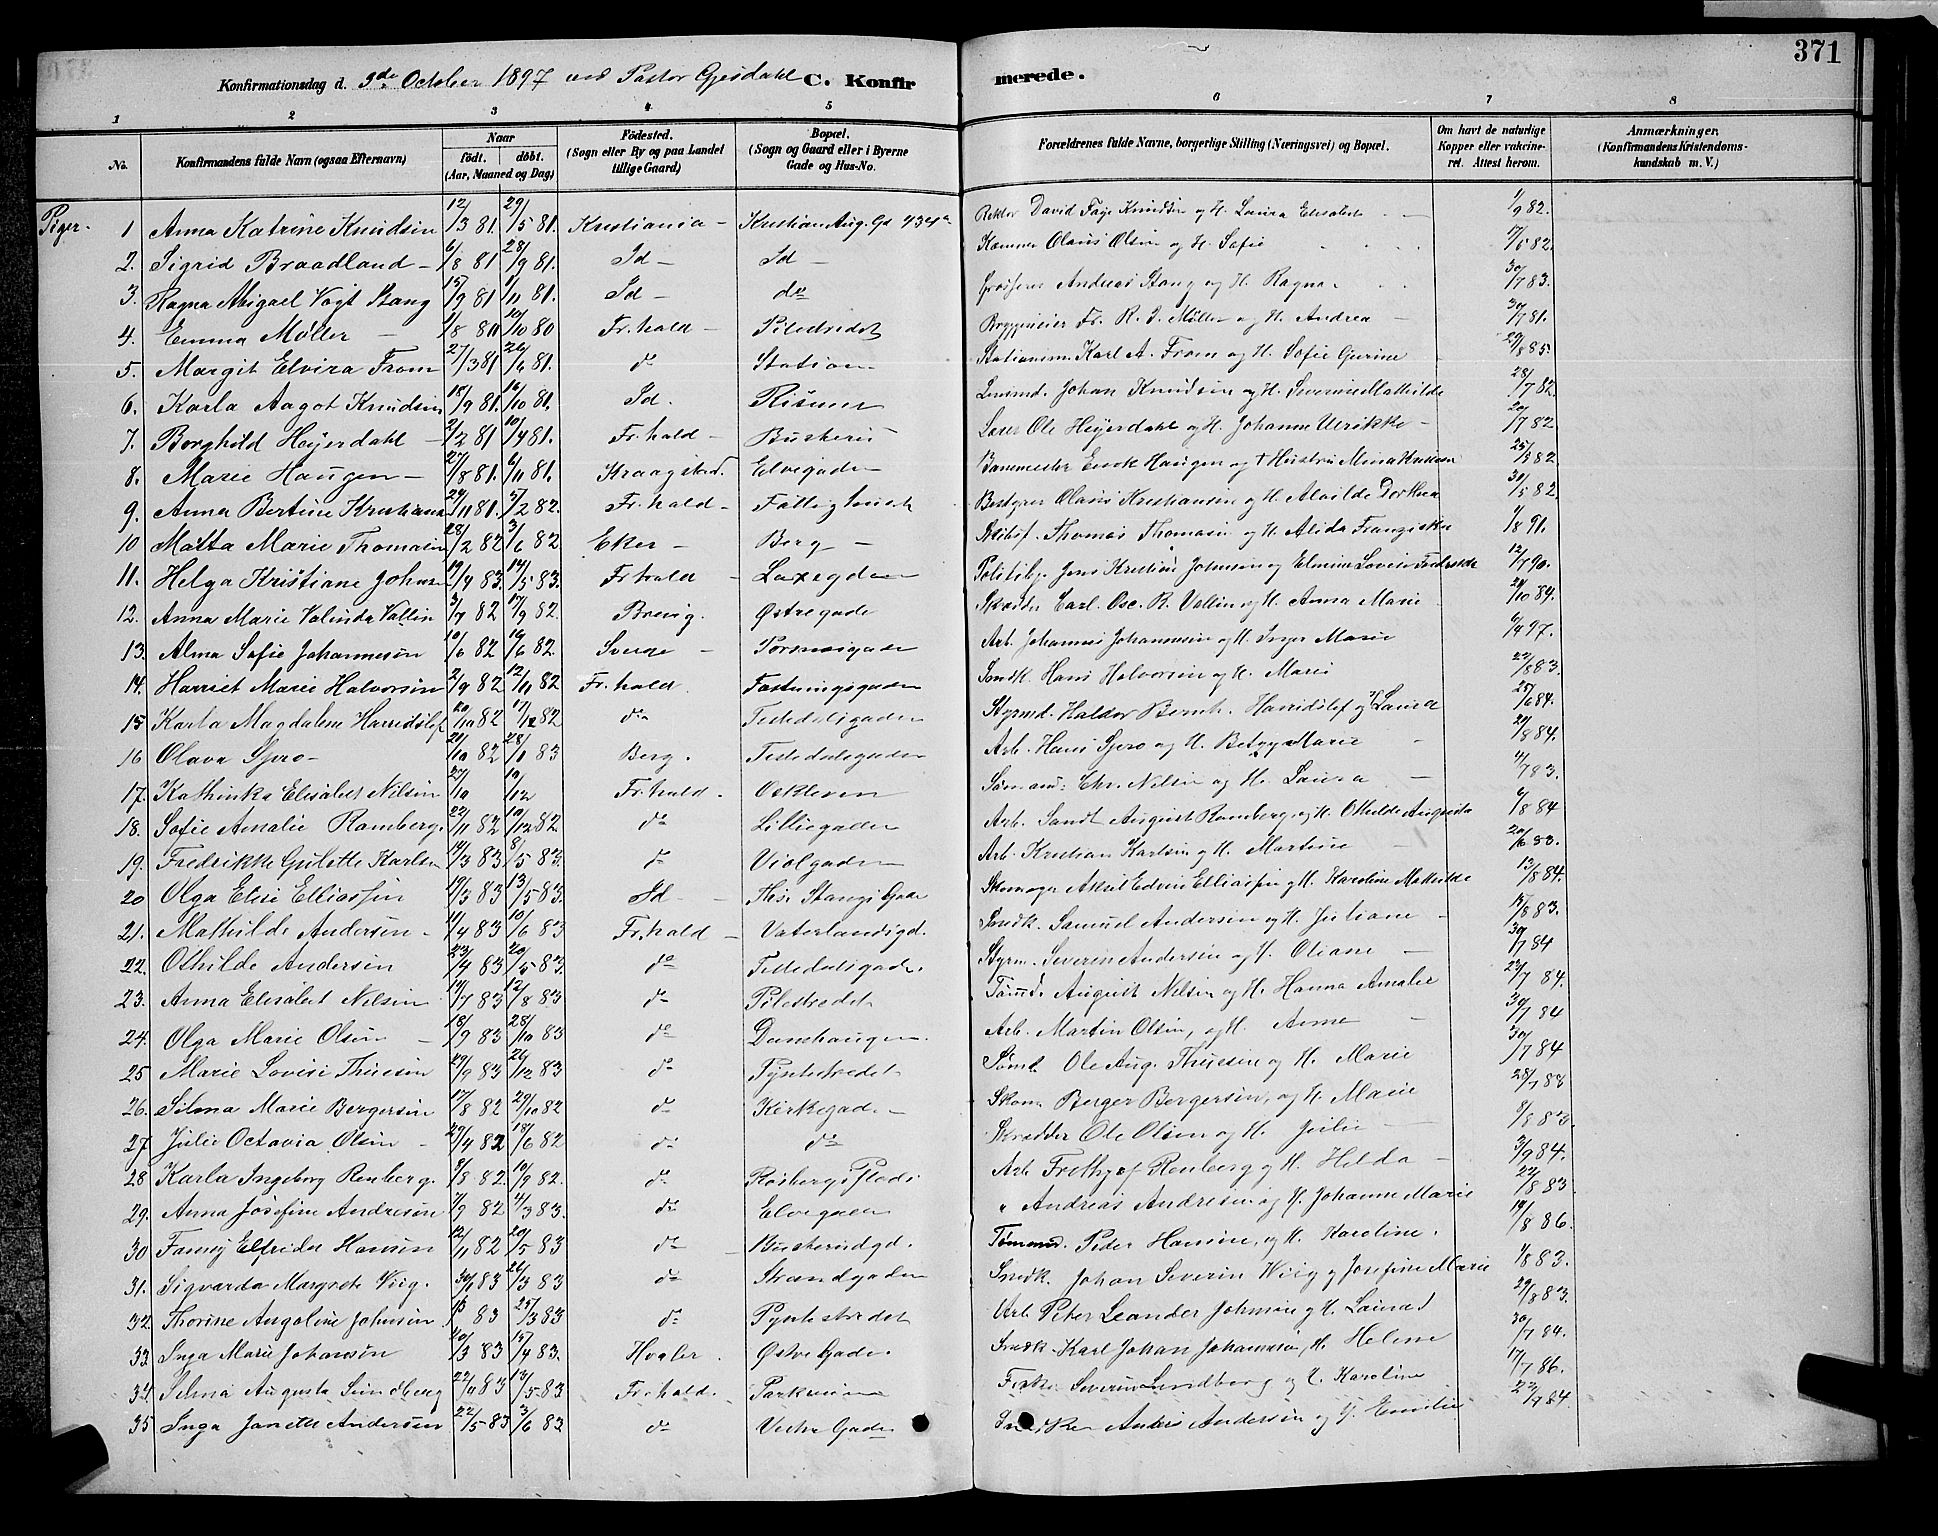 371
Konfirmationsdag d. 3de October 1897 ved Pastor Gjesdahl C. Konfirmerede.
1 2 3 4 5 6 7 8
No. Konfirmandens fulde Navn (ogsaa Efternavn) Naar født. døbt. (Aar, Maaned og Dag) Fødested. (Sogn eller By og paa Landet tillige Gaard) Bopæl. (Sogn og Gaard eller i Byerne Gade og Hus-No. Forældrenes fulde Navne, borgerlige Stilling (Næringsvei) og Bopæl. Om havt de naturlige Kopper eller vakcineret. Attest herom. Anmærkninger. (Konfirmandens Kristendomskundskab m. V.)
Piger.
1 Anna Katrine Knudsen 12/3 81. 29/5 81. Kristiania Kristian Aug. Gd Rektor David Faye Knudsen og H. Laura Elisabet 1/9 82.
2. Sigrid Braadland 6/8 81 28/9 81. Id Id Kæmner Olaus Olsen og H. Sofie
3. Ragna Abigael Vogt Stang 15/9 81 1/11 81. Id do Grosserer Andreas Stang og H. Ragna 30/7 83.
4. Emma Møller 10/10 80 Fr.hald Pilestredet Bryggeieier Fr. R. J. Møller og H. Andrea 30/7 81.
5. Margit Elvira From 27/3 81 26/6 81. do Station Stationsm. Karl A. From og H. Sofie Gurine 29/8 85.
6. Karla Aagot Knudsen 18/9 81. 16/10 81. Id. Risum Johan Knudsen og H. Severine Mathilde 28/7 82.
7. Borghild Heyerdahl 21/2 81 10/4 81. Fr.hald Buskerud Ole Heyerdahl og H. Johanne Ulrikke 20/7 82
8. Marie Haugen 27/8 81. 6/11 81. Kraagstad. Elvegaden Banemester Haugen og † Hustru Mina 25/5 82
9. Anna Bertine Kristiansen 29/11 81. 5/2 82. Fr.hald Fattighuset Bestyrer Olaus Kristiansen og H. Alvilde Dorthea 30/5 82.
10 Marie Thomasen 28/2 82 3/6 82 Eker Berg Thomas Thomasen og H. Alida Franziska 1/8 91.
11. Helga Kristiane Johnsen 19/4 83. 14/5 83. Fr.hald Politib. Jens Kristian Johnsen og Elmine Lovise 12/7 90.
12. Anna Marie Valinda Vallin 3/7 82 17/9 82. Brevig. Østregade Skrædder Carl. Osc. R. Vallin og H. Anna Marie 24/10 84.
13. Alma Sofie Johannesen 10/6 82 19/6 82. Sverge Arb. Johannes Johannesen og H. Inger Marie 6/4 97.
14. Harriet Marie Halvorsen 2/9 82 12/11 82 Fr.hald. Fæstningsgaden Snedk. Hans Halvorsen og H. Marie 22/8 83.
15 Karla Magdalene Harridslef 20/10 82 17/12 82 do Tistedalsgaden Styrmd. Haldor Bernh. Harridslef og H. Laura 25/6 84.
16 Olava Spro 20/10 82 28/1 83 Berg. Tistedalsgaden Arb. Hans Spro og H. Betzy Marie 21/8 84.
17. Kathinka Elisabet Nilsen 27/10 10/12 Fr.hald. Oskleven Sømand: Chr. Nilsen og H. Laura 4/7 83.
18. Sofie Amalie Ramberg. 22/11 82 10/12 82 do Lilliegaden Arb. August Ramberg, og H. Othilde Augusta 6/8 84
19. Fredrikke Gulette Karlsen 14/3 83 8/5 83. do Violgaden Arb. Kristian Karlsen og H. Martine
20 Olga Elise Elliassen 19/3 83 13/5 83. Id Ths. Stangs Gade Skomager Aksel Edvin Elliassen og H. Karoline Mathilde 13/8 84.
21. Mathilde Andersen. 11/4 83 10/6 83 Fr.hald Vaterlandsgd. Snedk. Samuel Andersen og H. Juliane 15/8 83.
22. Othilde Andersen 23/4 83 20/5 83. do Tistedalsgade. Styrm. Severin Andersen og H. Oliane 30/7 84
23. Anna Elisabet Nilsen 19/7 83 12/8 83 do Pilestredet August Nilsen og H. Hanna Amalie 23/7 84.
24. Olga Marie Olsen 18/9 83 28/10 83 do Damhaugen. Arb. Martin Olsen, og H. Anna 30/7 84
25 Marie Lovise Thuesen 29/9 83 26/12 83 do Pyntestredet Sømd. Ole Aug. Thuesen og H. Marie 30/7 84
26. Silma Marie Bergersen 17/8 82 29/10 82 do Kirkegaden Skom. Berger Bergersen, og H. Marie 28/7 83
27 Julie Octavia Olsen 29/4 82 18/6 82 do do Skrædder Ole Olsen og H. Julie 9/8 83.
28 Karla Ingeborg Renberg. 9/8 82. 10/9 82. do Rosbergsfladen Arb. Frithjof Renberg og H. Hilda 3/9 84.
29. Anna Josefine Andresen 7/9 82 4/3 83. do Elvegaden " Andreas Andresen og H. Johanne Marie 22/8 83.
30 Fanny Elfrida Hansen 12/11 82 20/5 83 do Buskerudgd. Tømmmd. Peder Hansen, og H. Karoline. 19/8 86.
31. Sigvarda Margrete Wiig. 30/1 83 26/3 83 do Strandgaden Snedk. Johan Severin Wiig og Josefine Marie 1/8 83.
32. Thorine Angoline Johnsen 83 25/3 83 do Pyntestredet Arb Peter Leander Johnsen og H. Laura 29/8 83.
33. Inga Marie Johansen 20/3 83 15/4 83. Hvaler. Østre Gade. Snedk. Karl Johan Johannsen, H. Helene 30/7 84.
34. Selma Augusta Lundberg 83 13/5 83 Fr.hald. Parkveien Fisker Severin Lundberg og H. Karoline 17/7 86.
35 Inga Janette Andersen 22/5 83 3/6 83 do Vestre Gade Snedker Anders Andersen og H. Emilie 23/7 84.